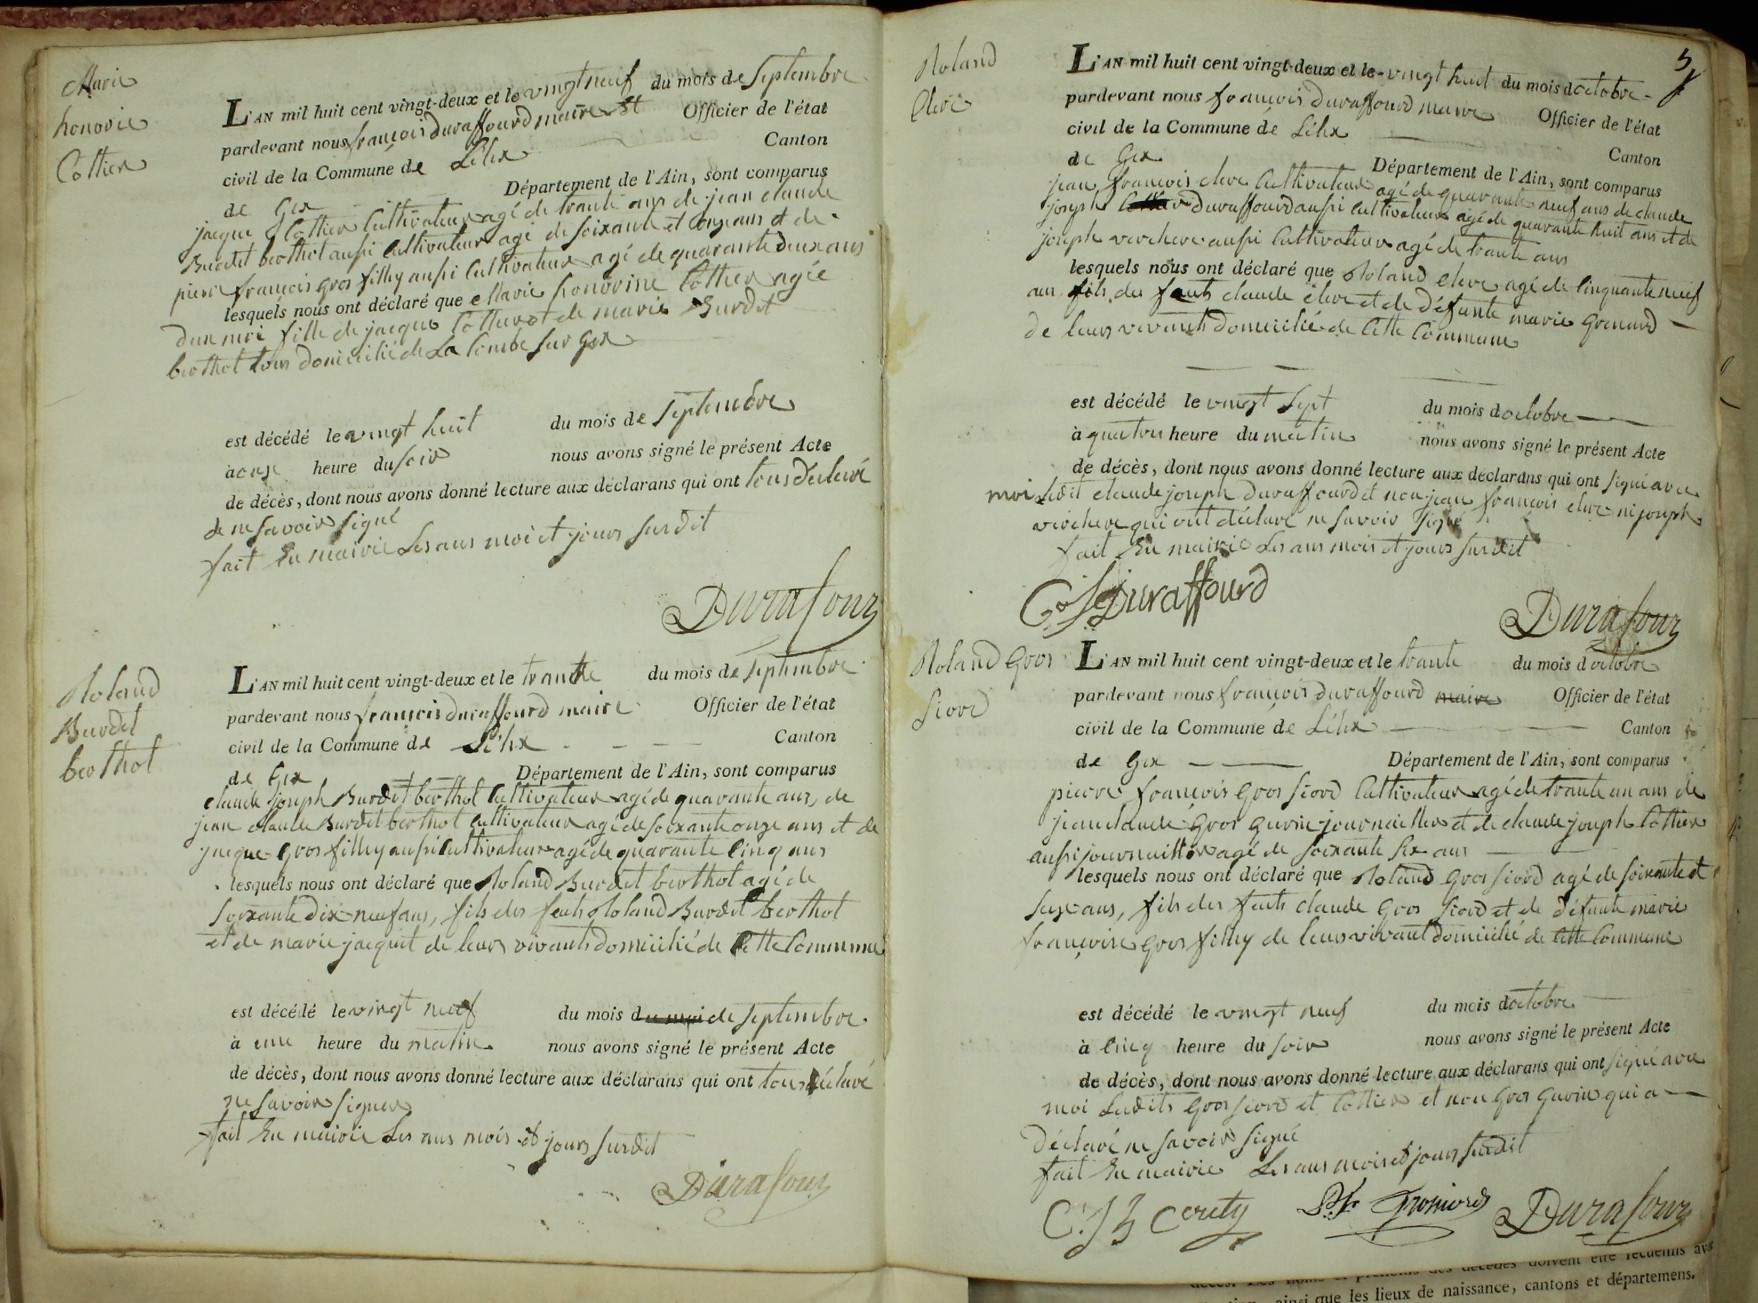 Marie
honorie
Cottier
L'AN mil huit cent vingt-deux et le vingt neuf du mois de Septembre
pardevant nous françois duraffourd maire Officier de l'état
civil de la Commune de Lélex Canton
de Gex Département de l'Ain, sont comparus
jacque Cottier Cultivateur agé de trante ans de jean claude
Burdet berthot aussi Cultivateur agé de soixante et onze ans et de
pierre françois gros filly aussi Cultivateur agé de quarante deux ans
lesquels nous ont déclaré que Marie honorine Cottier agée
dun moi fille de jacque Cottier et de marie Burdet
berthot tous domicilié de La Combe sur Gex
est décédé le vingt huit du mois de Septembre
à onze heure du soir nous avons signé le présent Acte
de décès, dont nous avons donné lecture aux déclarans qui ont tous déclaré
de ne savoir signé
fait En mairie Les ans moi et jours surdit
Durafour
Roland
Burdet
berthot
L'AN mil huit cent vingt-deux et le trante du mois de septembre
pardevant nous françois duraffourd maire Officier de l'état
civil de la Commune de Lélex Canton
de Gex Département de l'Ain, sont comparus
claude joseph Burdet berthot Cultivateur agé de quarante ans, de
jean claude Burdet berthot cultivateur agé de soixante onze ans et de
jacque gros filly aussi Cultivateur agé de quarante cinq ans
lesquels nous ont déclaré que Roland Burdet berthot agé de
soixante dix neuf ans, fils des feuts Roland Burdet berthot
et de marie jacquet de leurs vivants domicilié de Cette Commune
est décédé le vingt neuf du mois du moi de septembre
à une heure du matin nous avons signé le présent Acte
de décès, dont nous avons donné lecture aux déclarans qui ont tous déclaré
ne savoir signer
fait En mairie Les ans mois et jours surdit
Durafour
5
Roland
L'AN mil huit cent vingt-deux et le vingt huit du mois doctobre
pardevant nous françois duraffourd maire Officier de l'état
civil de la Commune de Lélex Canton
de Gex Département de l'Ain, sont comparus
jean françois Cultivateur agé de quarante neuf ans de claude
joseph duraffourd aussi Cultivateur agé de quarante huit ans et de
joseph verchere aussi Cultivateur agé de trante ans
lesquels nous ont déclaré que Roland agé de cinquante neuf
ans fils des feuts claude et de défunte marie grenard
de leurs vivants domicilié de Cette Commune
est décédé le vingt sept du mois doctobre
à quatres heure du matin nous avons signé le présent Acte
de décès, dont nous avons donné lecture aux déclarans qui ont signé avec
moi ledit claude joseph duraffourd et non jean françois ni joseph
verchere qui ont déclaré ne savoir signé
fait En mairie Les ans mois et jours surdit
Duraffourd
Durafour
Roland Gros
Siord
L'AN mil huit cent vingt-deux et le trante du mois doctobre
pardevant nous françois duraffourd maire Officier de l'état
civil de la Commune de Lélex Canton
de Gex Département de l'Ain, sont comparus
pierre françois Gros Siord Cultivateur agé de trante un ans de
jean claude Gros Gurin journaillier et de claude joseph Cottier
aussi journaillier agé de soixante six ans
lesquels nous ont déclaré que Roland Gros Siord agé de soixante et
seze ans, fils des feuts claude Gros Siord et de défunte marie
françoise gros filly de leurs vivant domicilié de Cette Commune
est décédé le vingt neuf du mois doctobre
à cinq heure du soir nous avons signé le présent Acte
de décès, dont nous avons donné lecture aux déclarans qui ont signé avec
moi Ledits Gros Siord et Cottier et non Gros Gurin qui a
déclaré ne savoir signé
fait En mairie Les ans mois et jours surdit
Durafour
ainsi que les lieux de naissance, cantons et départemens.